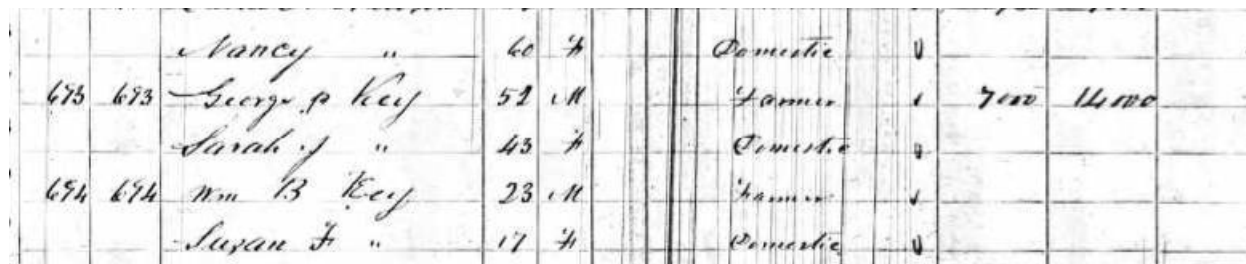 Nancy " 60 F Domestic
693 693 George P Key 52 M Farmer 7000 14000
Sarah J " 43 F Domestic
694 694 Wm B Key 23 M Farmer
Susan F " 17 F Domestic